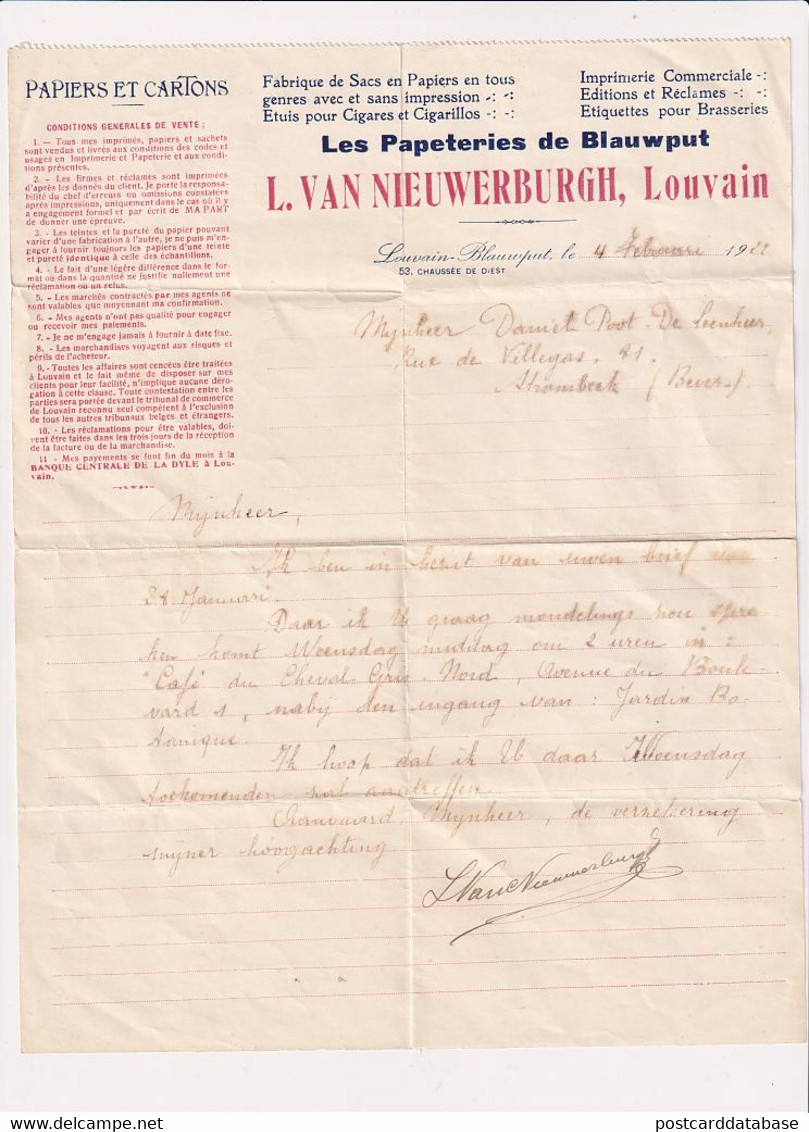 PAPIERS ET CARTONS
CONDITIONS GENERALES DE VENTE :
1. — Tous mes imprimés, papiers et sachets
sont vendus et livrés aux conditions des codes et
usages en Imprimerie et Papeterie et aux condi-
tions présentes.
2. - Les firmes et réclames sont imprimées
d'après les donnés du client. Je porte la responsa-
bilité du chef d'erreurs ou omissions constatées
après impressions, uniquement dans le cas où il y
a engagement formel et par écrit de MA PART
de donner une épreuve.
3. - Les teintes et la pureté du papier pouvant
varier d'une fabrication à l'autre, je ne puis m'en-
gager à fournir toujours les papiers d'une teinte
et pureté identique à celle des échantillons.
4. - Le fait d'une légère différence dans le for-
mat ou dans la quantité ne justifie nullement une
réclamation ou un refus.
5. - Les marchés contractés par mes agents ne
sont valables que moyennant ma confirmation.
6. - Mes agents n'ont pas qualité pour engager
ou recevoir mes paiements.
7. - Je ne m'engage jamais à fournir à date fixe.
8. - Les marchandises voyagent aux risques et
périls de l'acheteur.
9. - Toutes les affaires sont cencées être traitées
à Louvain et le fait même de disposer sur mes
clients pour leur facilité, n'implique aucune déro-
gation à cette clause. Toute contestation entre les
parties sera portée devant le tribunal de commerce
de Louvain reconnu seul compétent à l'exclusion
de tous les autres tribunaux belges et étrangers.
10. - Les réclamations pour être valables, doi-
vent être faites dans les trois jours de la réception
de la facture ou de la marchandise.
11 - Mes payements se font fin du mois à la
BANQUE CENTRALE DE LA DYLE à Lou-
vain.
Fabrique de Sacs en Papiers en tous
genres avec et sans impression -: -:
Etuis pour Cigares et Cigarillos -: -:
Imprimerie Commerciale -:
Editions et Réclames -: -:
Etiquettes pour Brasseries
Les Papeteries de Blauwput
L. VAN NIEUWERBURGH, Louvain
Louvain-Blauwput, le 4 Februari 1922
53, CHAUSSÉE DE DIEST
Mynheer Daniel Poot-De Leenheer,
Rue de Villegas. 21.
Strombeek
Mynheer,
Ik ben in bezit van uwen brief van
28 Januari.
Daar ik U graag mondelings zou spre
ken komt Woensdag middag om 2 uren in :
"Café du Cheval Gris-Nord, Avenue du Boule-
vard 1, nabij den ingang van : Jardin Bo-
tanique.
Ik hoop dat ik U daar Woensdag
toekomenden zal aantreffen.
Aanvaard, Mynheer, de verzekering
mijner hoogachting.
LVanNieuwerburgh
postcarddatabase